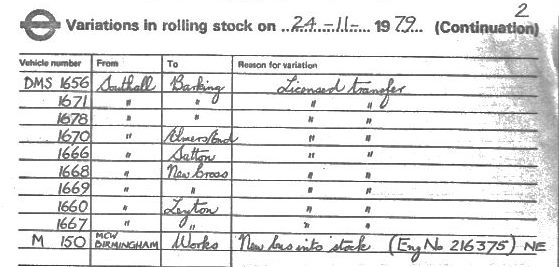 2
Variations in rolling stock on ..24.-11-.... 1979... (Continuation)
Vehicle number From To Reason for variation
DMS 1656 Southall Barking Licensed transfer
1671 " " " "
1678 " " " "
1670 " Elmers End " "
1666 " Sutton " "
1668 " New Cross " "
1669 " " " "
1660 " Leyton " "
1667 " " " "
M 150 MCW BIRMINGHAM Works New bus into stock (Eng No 216375) NE